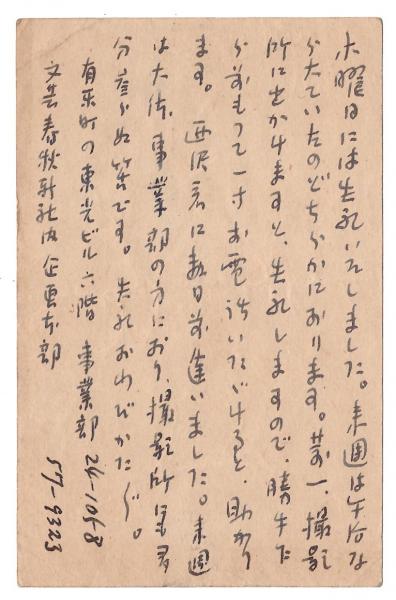 木曜日には失礼いたしました。来週は午后な
ら大ていたのどちらかにおります。若し一、撮影
所に出かけますと、失礼しますので、勝手だ
が前もって一寸お電話いただけると、助かり
ます。西沢君に数日前逢いました。来週
は大体、事業部の方におり、撮影所は多
分参らぬ筈です。失礼おわびかたがた。
有楽町の東光ビル六階 事業部 24-1068
文芸春秋新社内 企画本部 57-9323